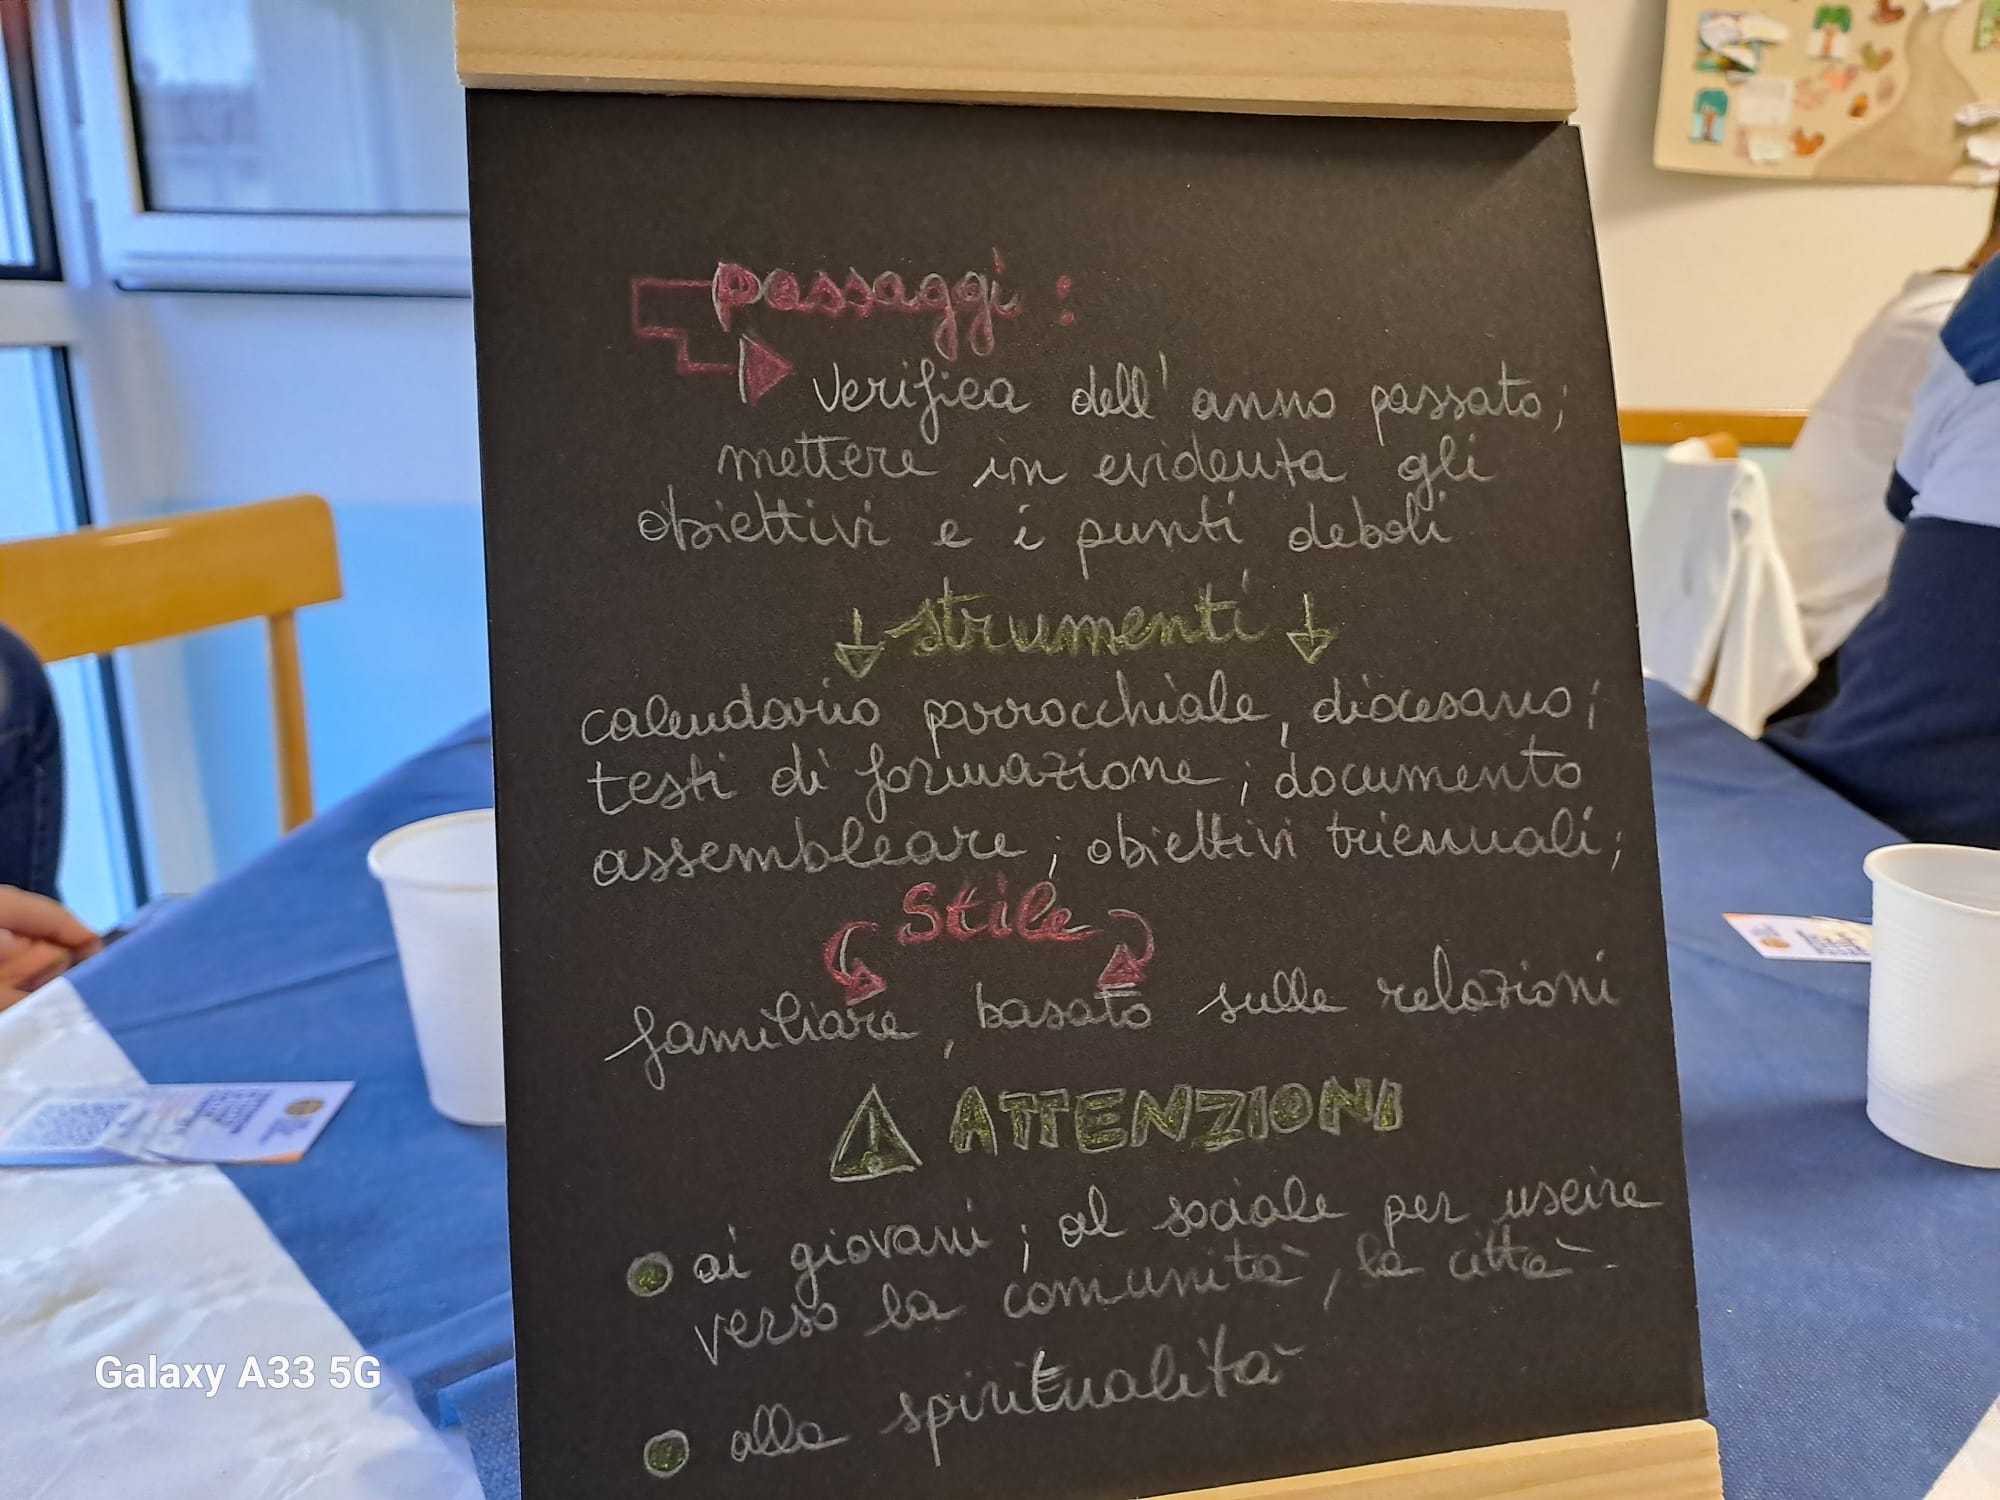 passaggi:
verifica dell'anno passato;
mettere in evidenza gli
obiettivi e i punti deboli
strumenti
calendario parrocchiale, diocesano;
testi di formazione; documento
assembleare; obiettivi triennali;
Stile
familiare, basato sulle relazioni
ATTENZIONI
ai giovani; al sociale per uscire
verso la comunità, la città.
alla spiritualità
Galaxy A33 5G